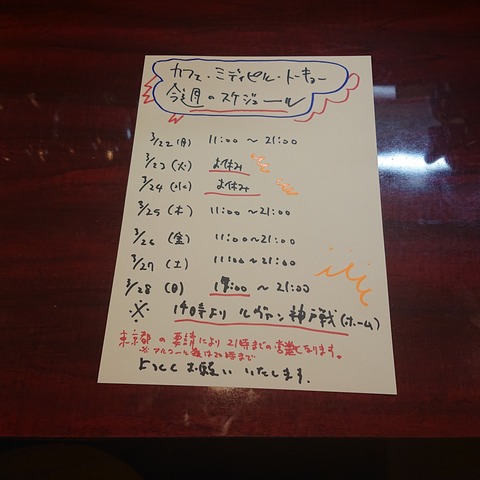 カフェ・ミディピル・トーキョー
今週のスケジュール
3/22(月) 11:00 ~ 21:00
3/23(火) お休み
3/24(水) お休み
3/25(木) 11:00 ~ 21:00
3/26(金) 11:00 ~ 21:00
3/27(土) 11:00 ~ 21:00
3/28(日) :00 ~ 21:00
※ 14時より ルヴァン神戸戦(ホーム)
東京都の要請により21時までの営業となります。
※アルコール類は20時まで
よろしくお願いいたします。